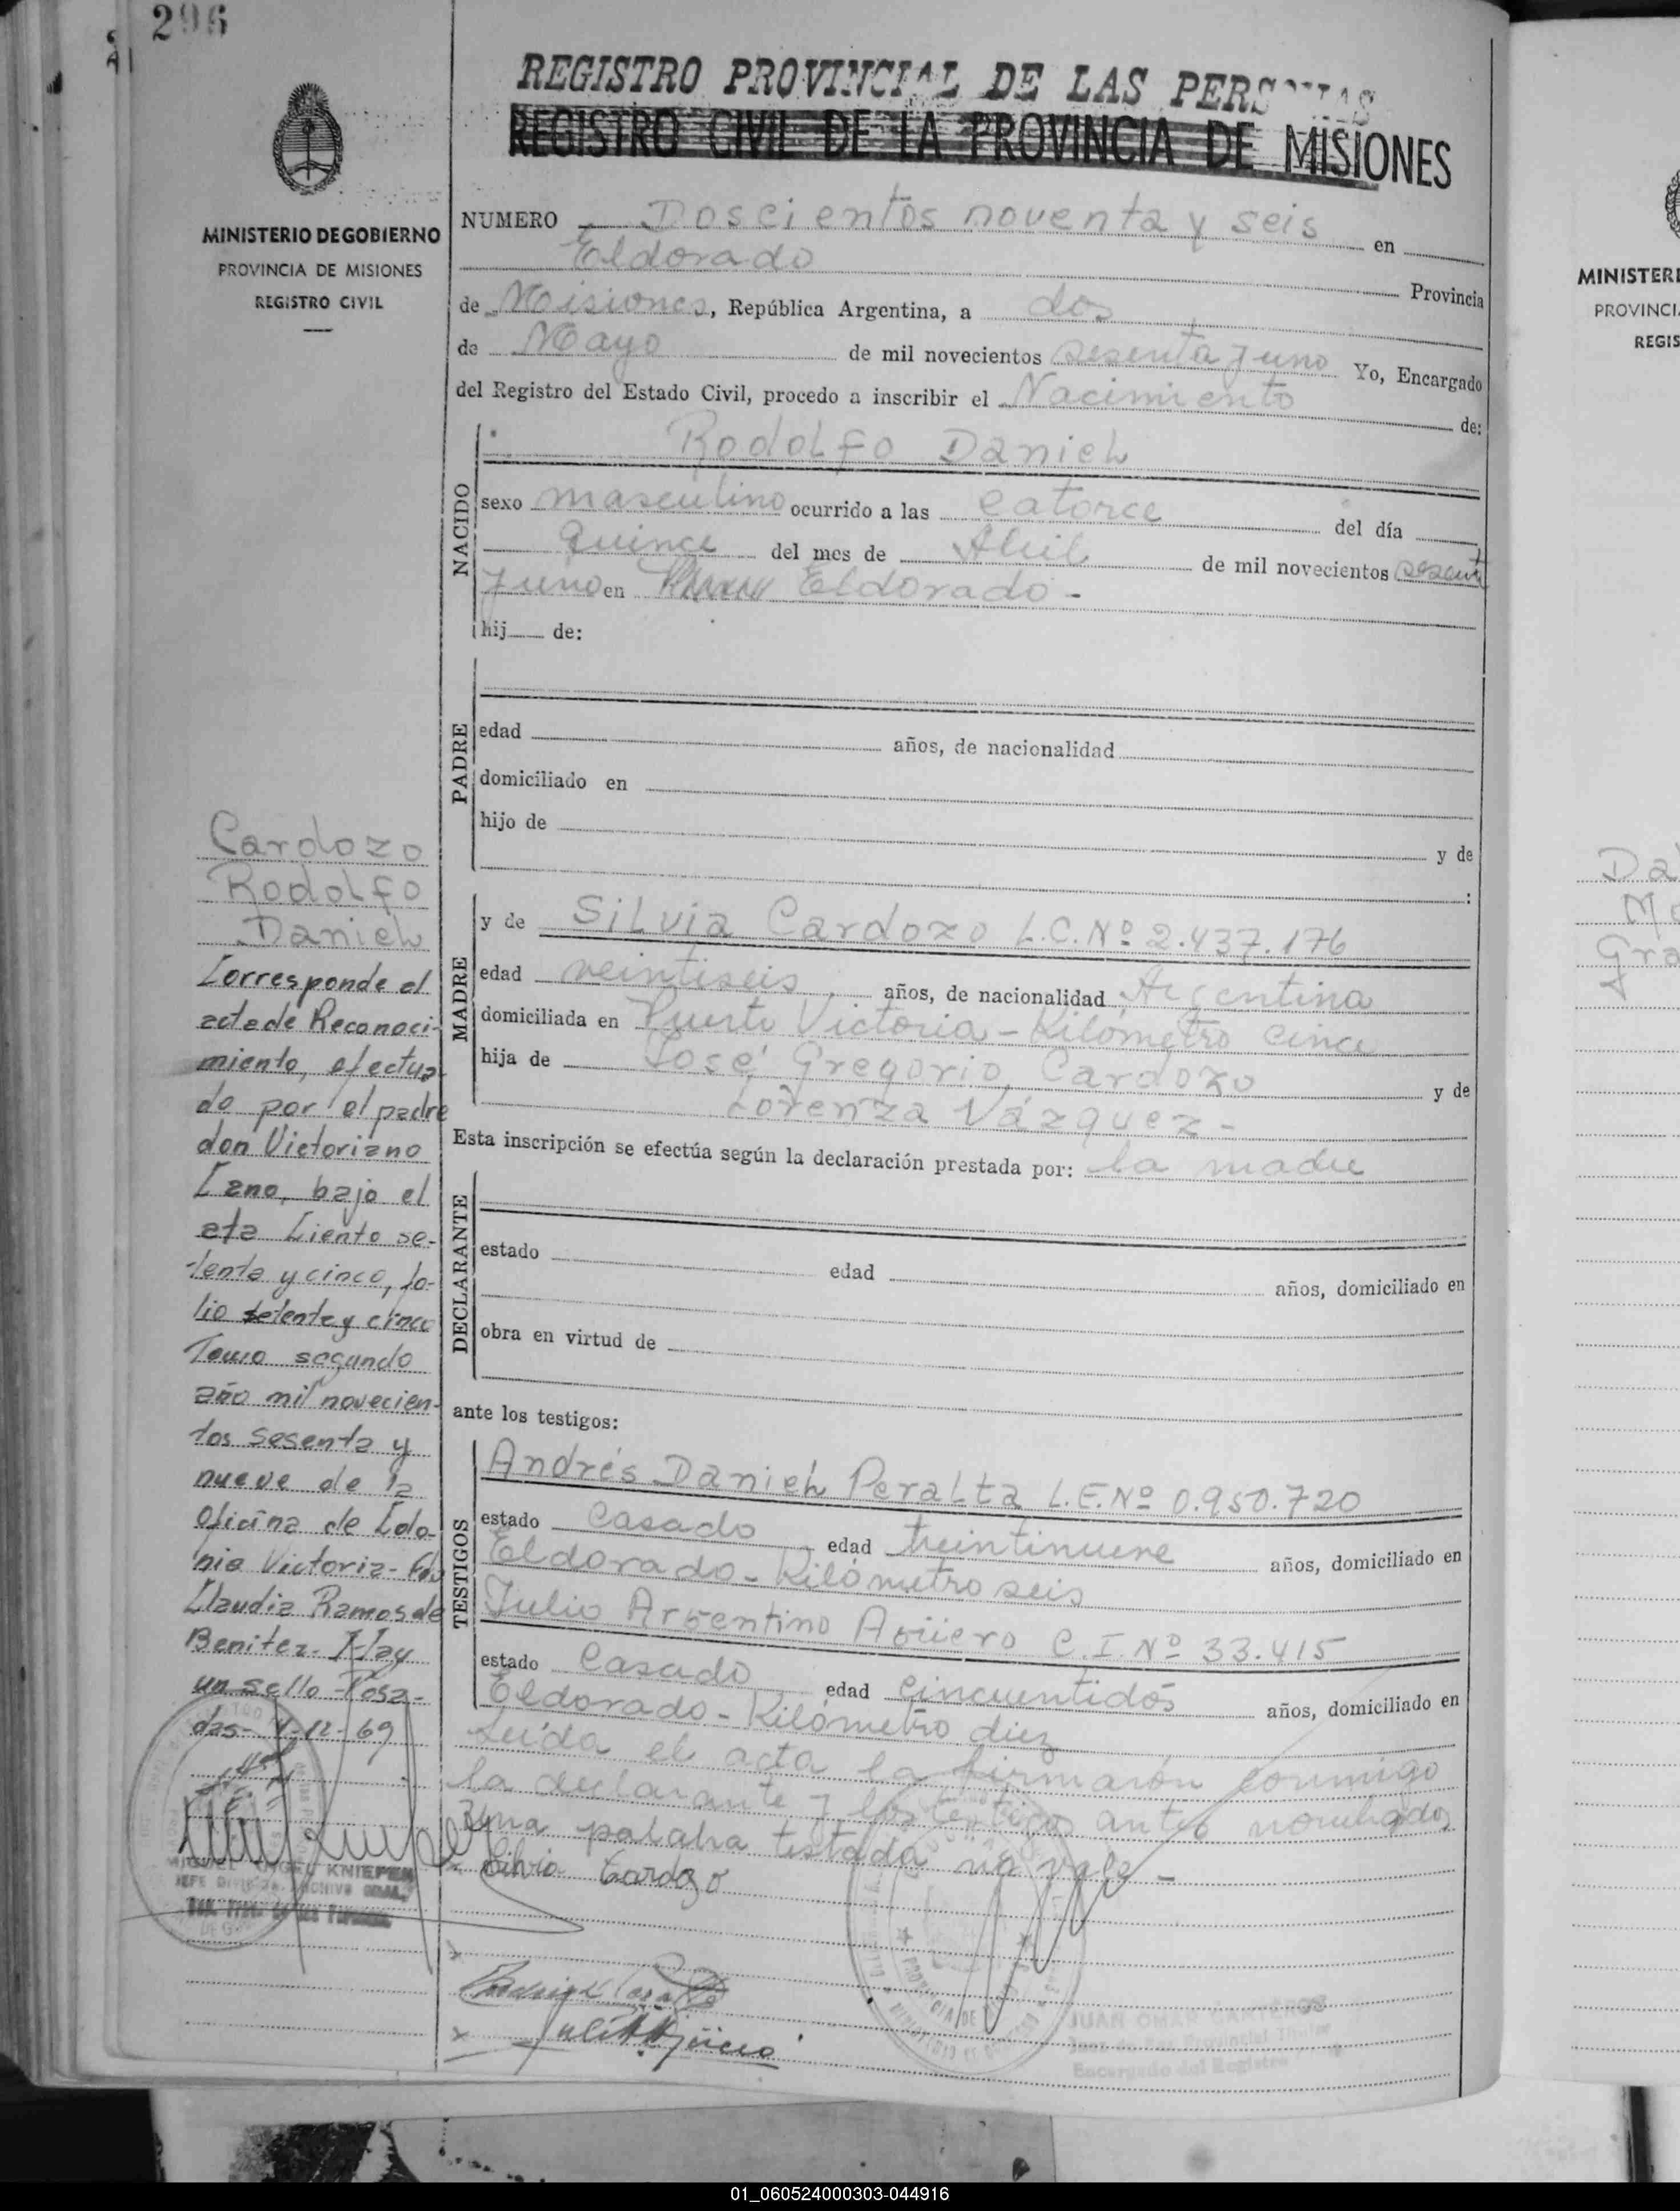 296
REGISTRO PROVINCIAL DE LAS PERSONAS
REGISTRO CIVIL DE LA PROVINCIA DE MISIONES
MINISTERIO DE GOBIERNO
PROVINCIA DE MISIONES
REGISTRO CIVIL
NUMERO Doscientos noventa y seis en
Eldorado Provincia
de Misiones, República Argentina, a dos
de Mayo de mil novecientos sesenta y uno Yo, Encargado
del Registro del Estado Civil, procedo a inscribir el Nacimiento de:
NACIDO
Rodolfo Daniel
sexo masculino ocurrido a las catorce del día
quince del mes de Abril de mil novecientos sesenta
y uno en Eldorado.-
hij de:
PADRE
edad años, de nacionalidad
domiciliado en
hijo de y de
:
MADRE
y de Silvia Cardozo L.C.Nº 2.437.176
edad veintiseis años, de nacionalidad Argentina
domiciliada en Puerto Victoria - Kilómetro cinco
hija de José Gregorio Cardozo y de
Lorenza Vázquez -
Esta inscripción se efectúa según la declaración prestada por: la madre
DECLARANTE
estado edad años, domiciliado en
obra en virtud de
ante los testigos:
TESTIGOS
Andrés Daniel Peralta L.E.Nº 0.950.720
estado Casado edad treintinueve años, domiciliado en
Eldorado - Kilómetro seis
Julio Argentino Agüero C.I.Nº 33.415
estado Casado edad cincuentidós años, domiciliado en
Eldorado - Kilómetro diez
Leída el acta la firmaron conmigo
la declarante y los testigos antes nombrados
Una palabra testada no vale -
Silvia Cardozo
Julio A. Agüero
JUAN OMAR
Juez de Paz Provincial Titular
Encargado del Registro
Cardozo
Rodolfo
Daniel
Corresponde al
acta de Reconoci-
miento, efectua-
do por el padre
don Victoriano
Cano, bajo el
ata Ciento se-
tenta y cinco, fo-
lio setenta y cinco
Tomo segundo
año mil novecien-
tos sesenta y
nueve de la
oficina de Colo-
nia Victoria- Fdo
Claudia Ramos de
Benitez- Hay
un sello -Posa-
das- 1-12-69
MIGUEL ANGEL KNIEPEN
JEFE DIVISION ARCHIVO GRAL.
Reg. Prov. de las Personas
PROVINCIA DE
MINISTERI
PROVINCIA
REGIS
Da
Ma
Gra
01_060524000303-044916